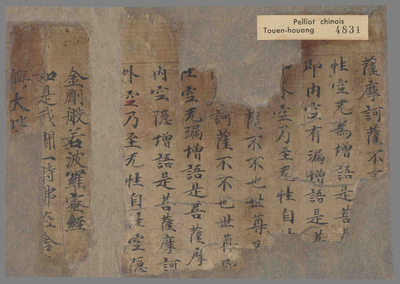 Pelliot chinois
Touen-houang 4831
薩摩訶薩不
性空无為增語是菩
即内空有漏增語是菩
外空乃至无性自
不不也世尊
訶薩不不也世尊即
性空无漏增語是菩薩摩
内空隱增語是菩薩摩訶
外空乃至无性自性空隱
金剛般若波羅蜜經
如是我聞一時佛在舍
大